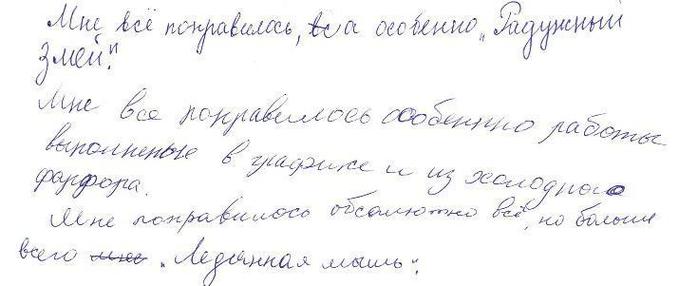 Мне всё понравилось, а особенно „Радужный
Змей."
Мне все понравилось особенно работы
выполненые в графике и из холодного
фарфора.
Мне понравилось обсолютно всё, но больше
всего „Ледянная мышь".